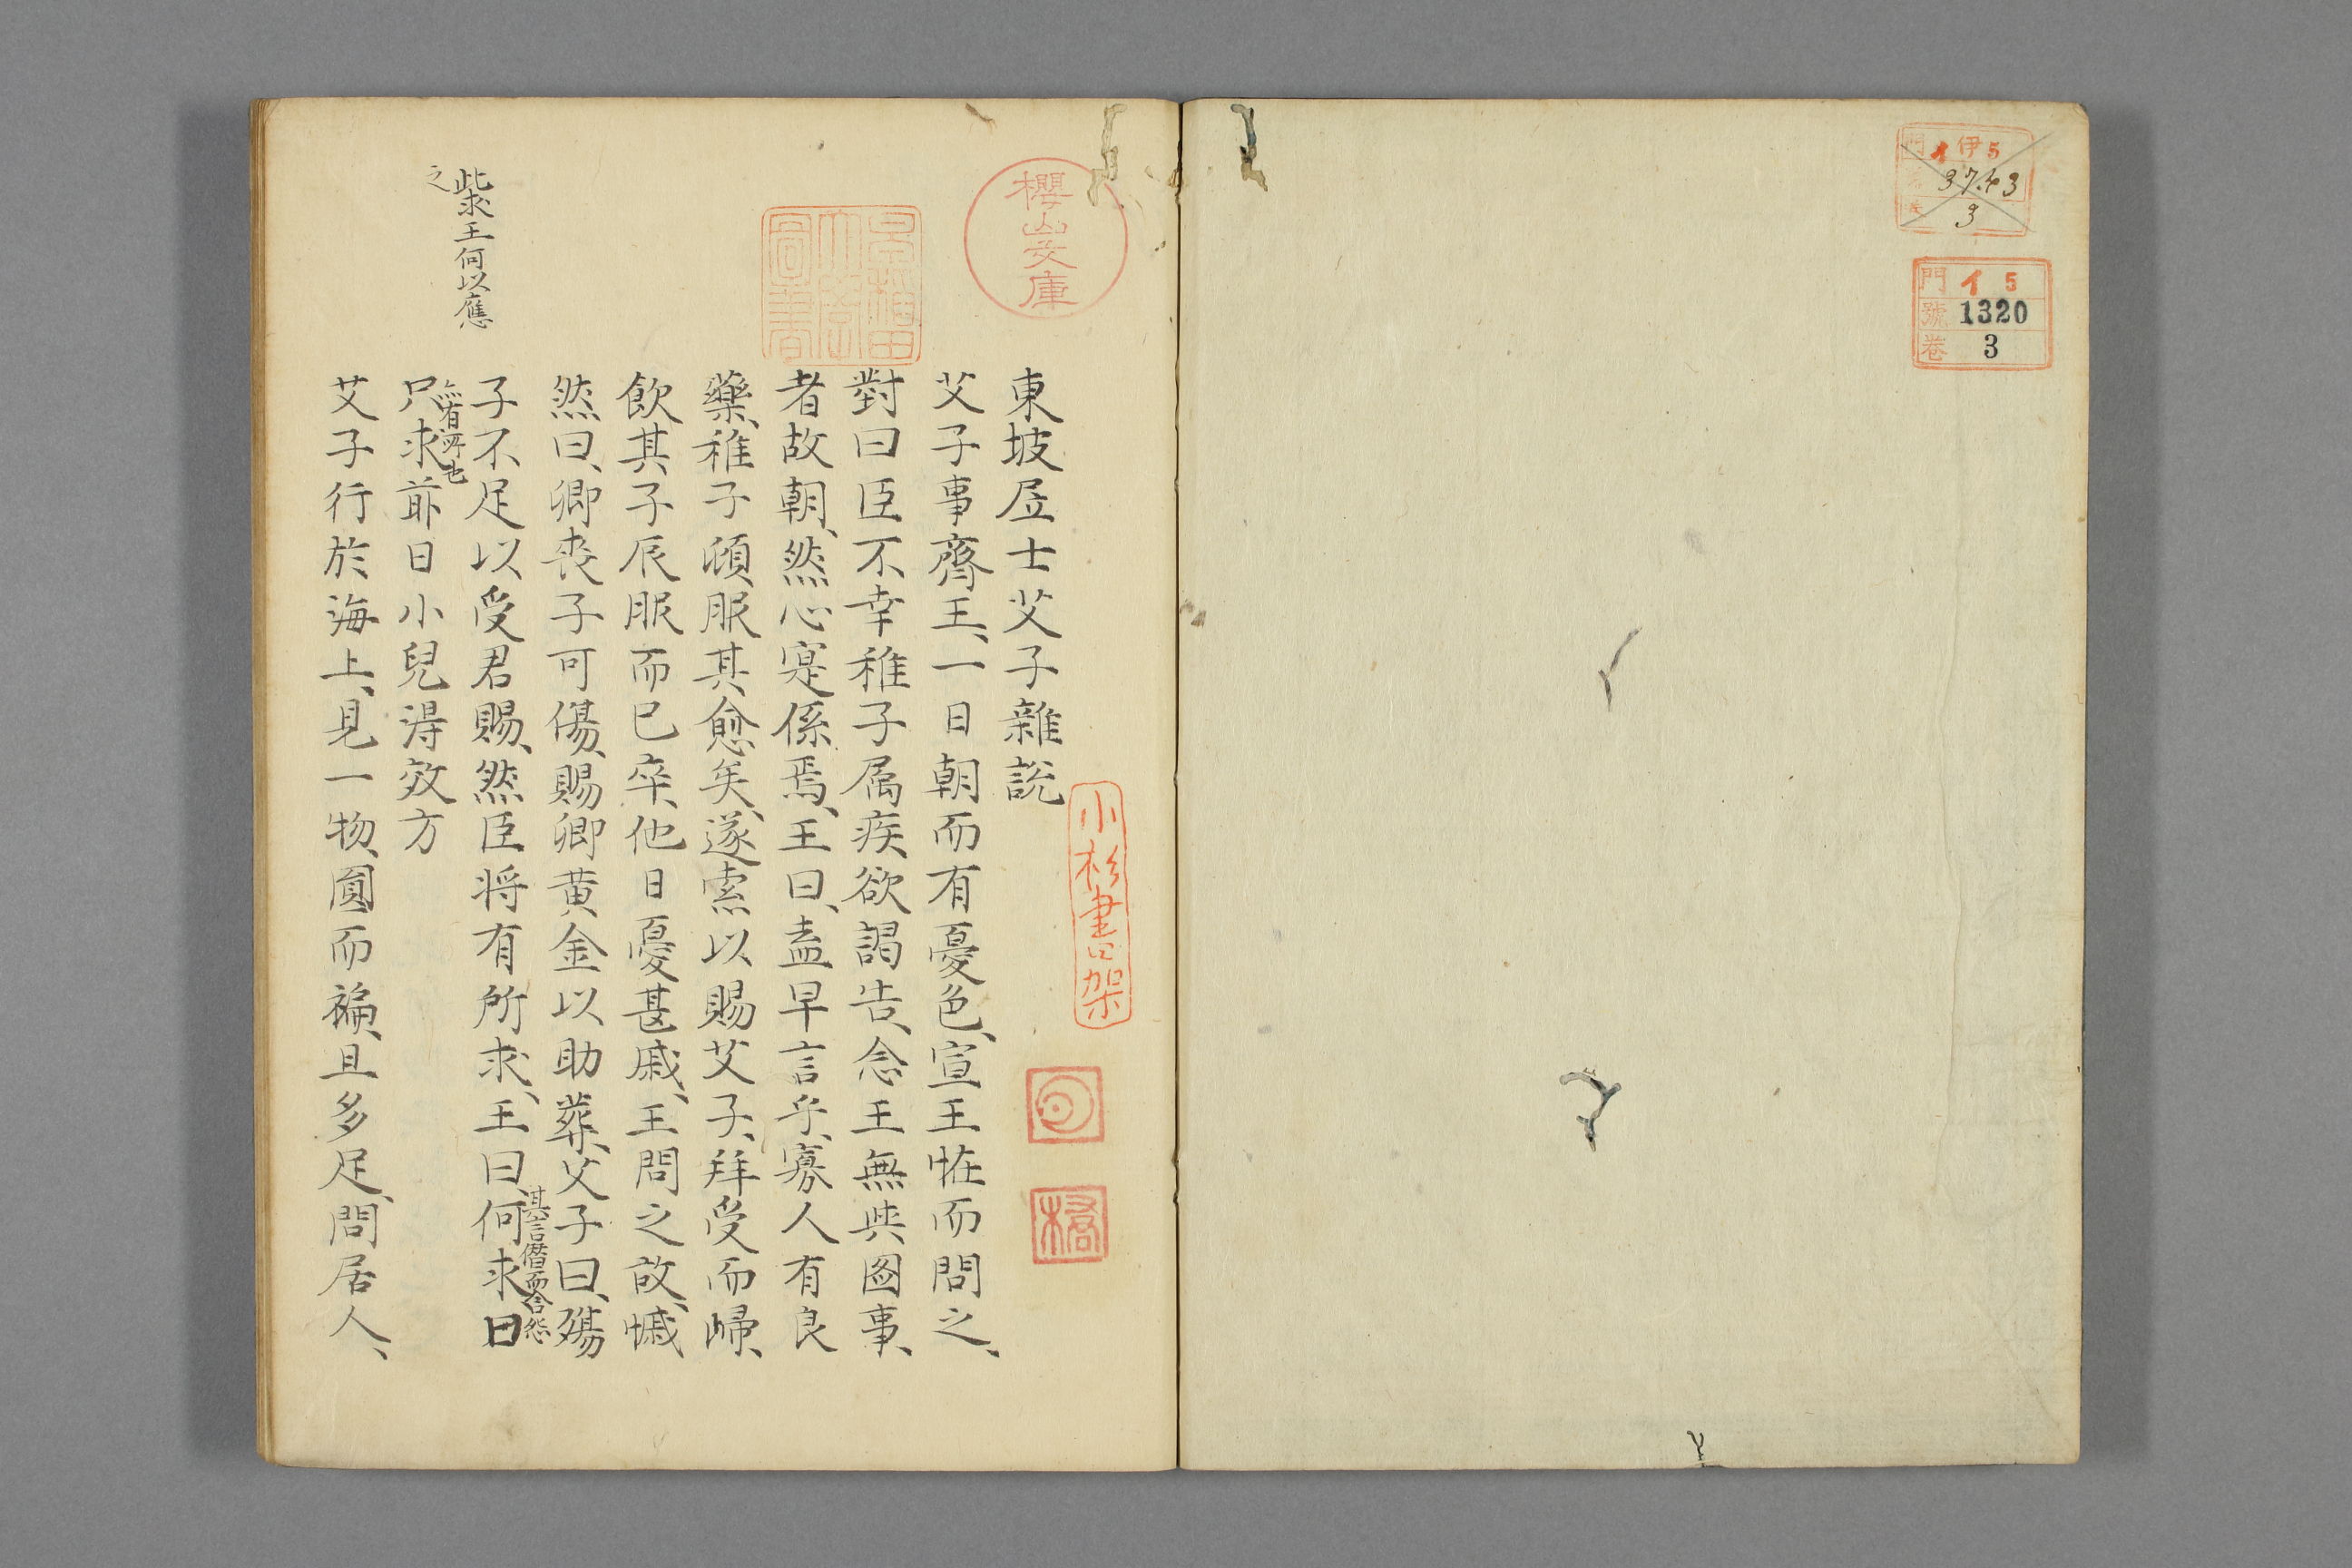 門 イ 伊 5
37.43
3
門 イ 5
號 1320
卷 3
櫻山文庫
小杉書架
橘
東坡居士艾子雜説
艾子事齊王、一日朝而有憂色、宣王怪而問之、
對曰臣不幸稚子属疾、欲謁告、念王無與图事、
者故朝、然心寔係焉、王曰、盍早言乎、寡人有良
藥、稚子頓服其愈矣、遂索以賜艾子、拜受而歸、
飲其子辰服而巳卒、他日憂甚戚、王問之故、慽
然曰、卿丧子可傷、賜卿黄金以助葬、艾子曰、殤
子不足以受君賜、然臣将有所求、王曰、何求曰
其言僭而含怨
只求前日小兒得效方
無有所也
此求王何以應
之
艾子行於海上、見一物、圓而褊、且多足、問居人、